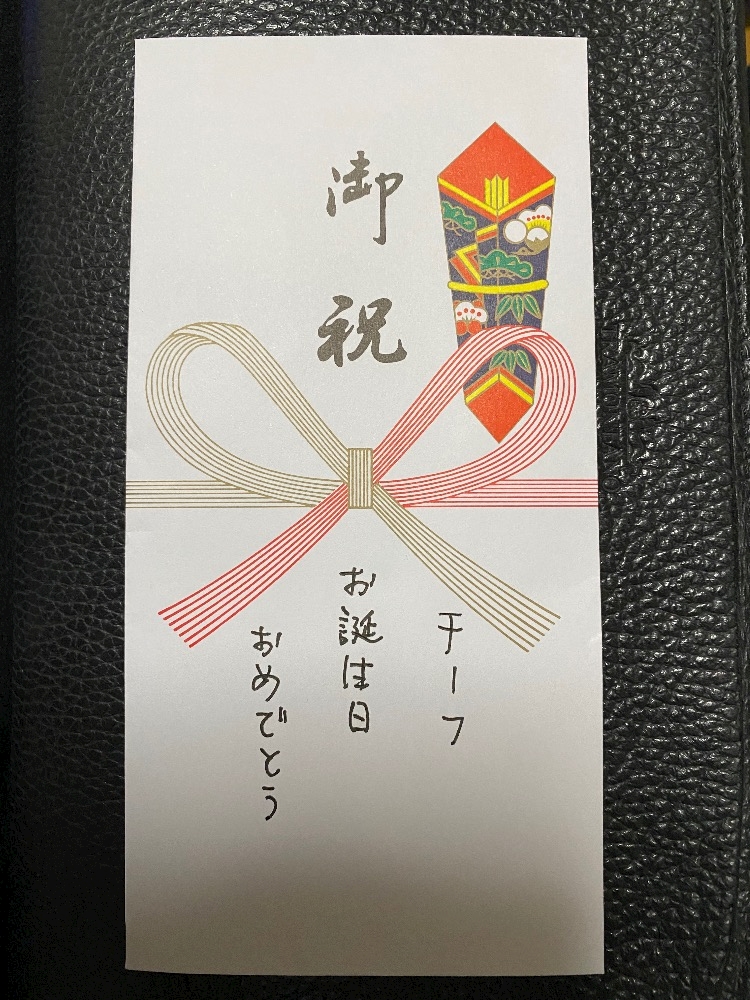 御祝
チーフ
お誕生日
おめでとう